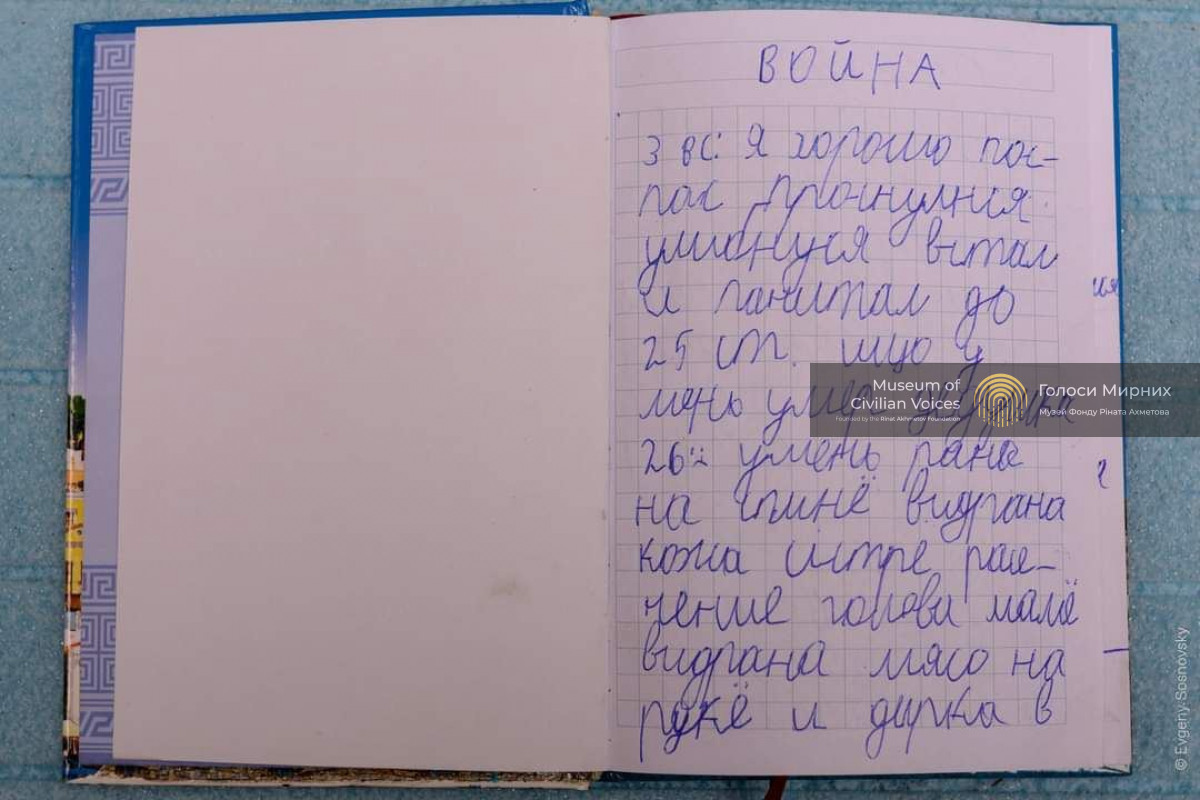 ВОЙНА
3 вс: Я хорошо пос-
пал проснулися
улибнуся встал
и пачитал до
25 ст. ищо у
мень умер дедушка
26: у мень рана
на спинё видрана
кожа сестре рані-
чение голови маме
видрана мясо на
рукё и дирка в
Museum of
Civilian Voices
Founded by the Rinat Akhmetov Foundation
Голоси Мирних
Музей Фонду Ріната Ахметова
© Evgeny Sosnovsky